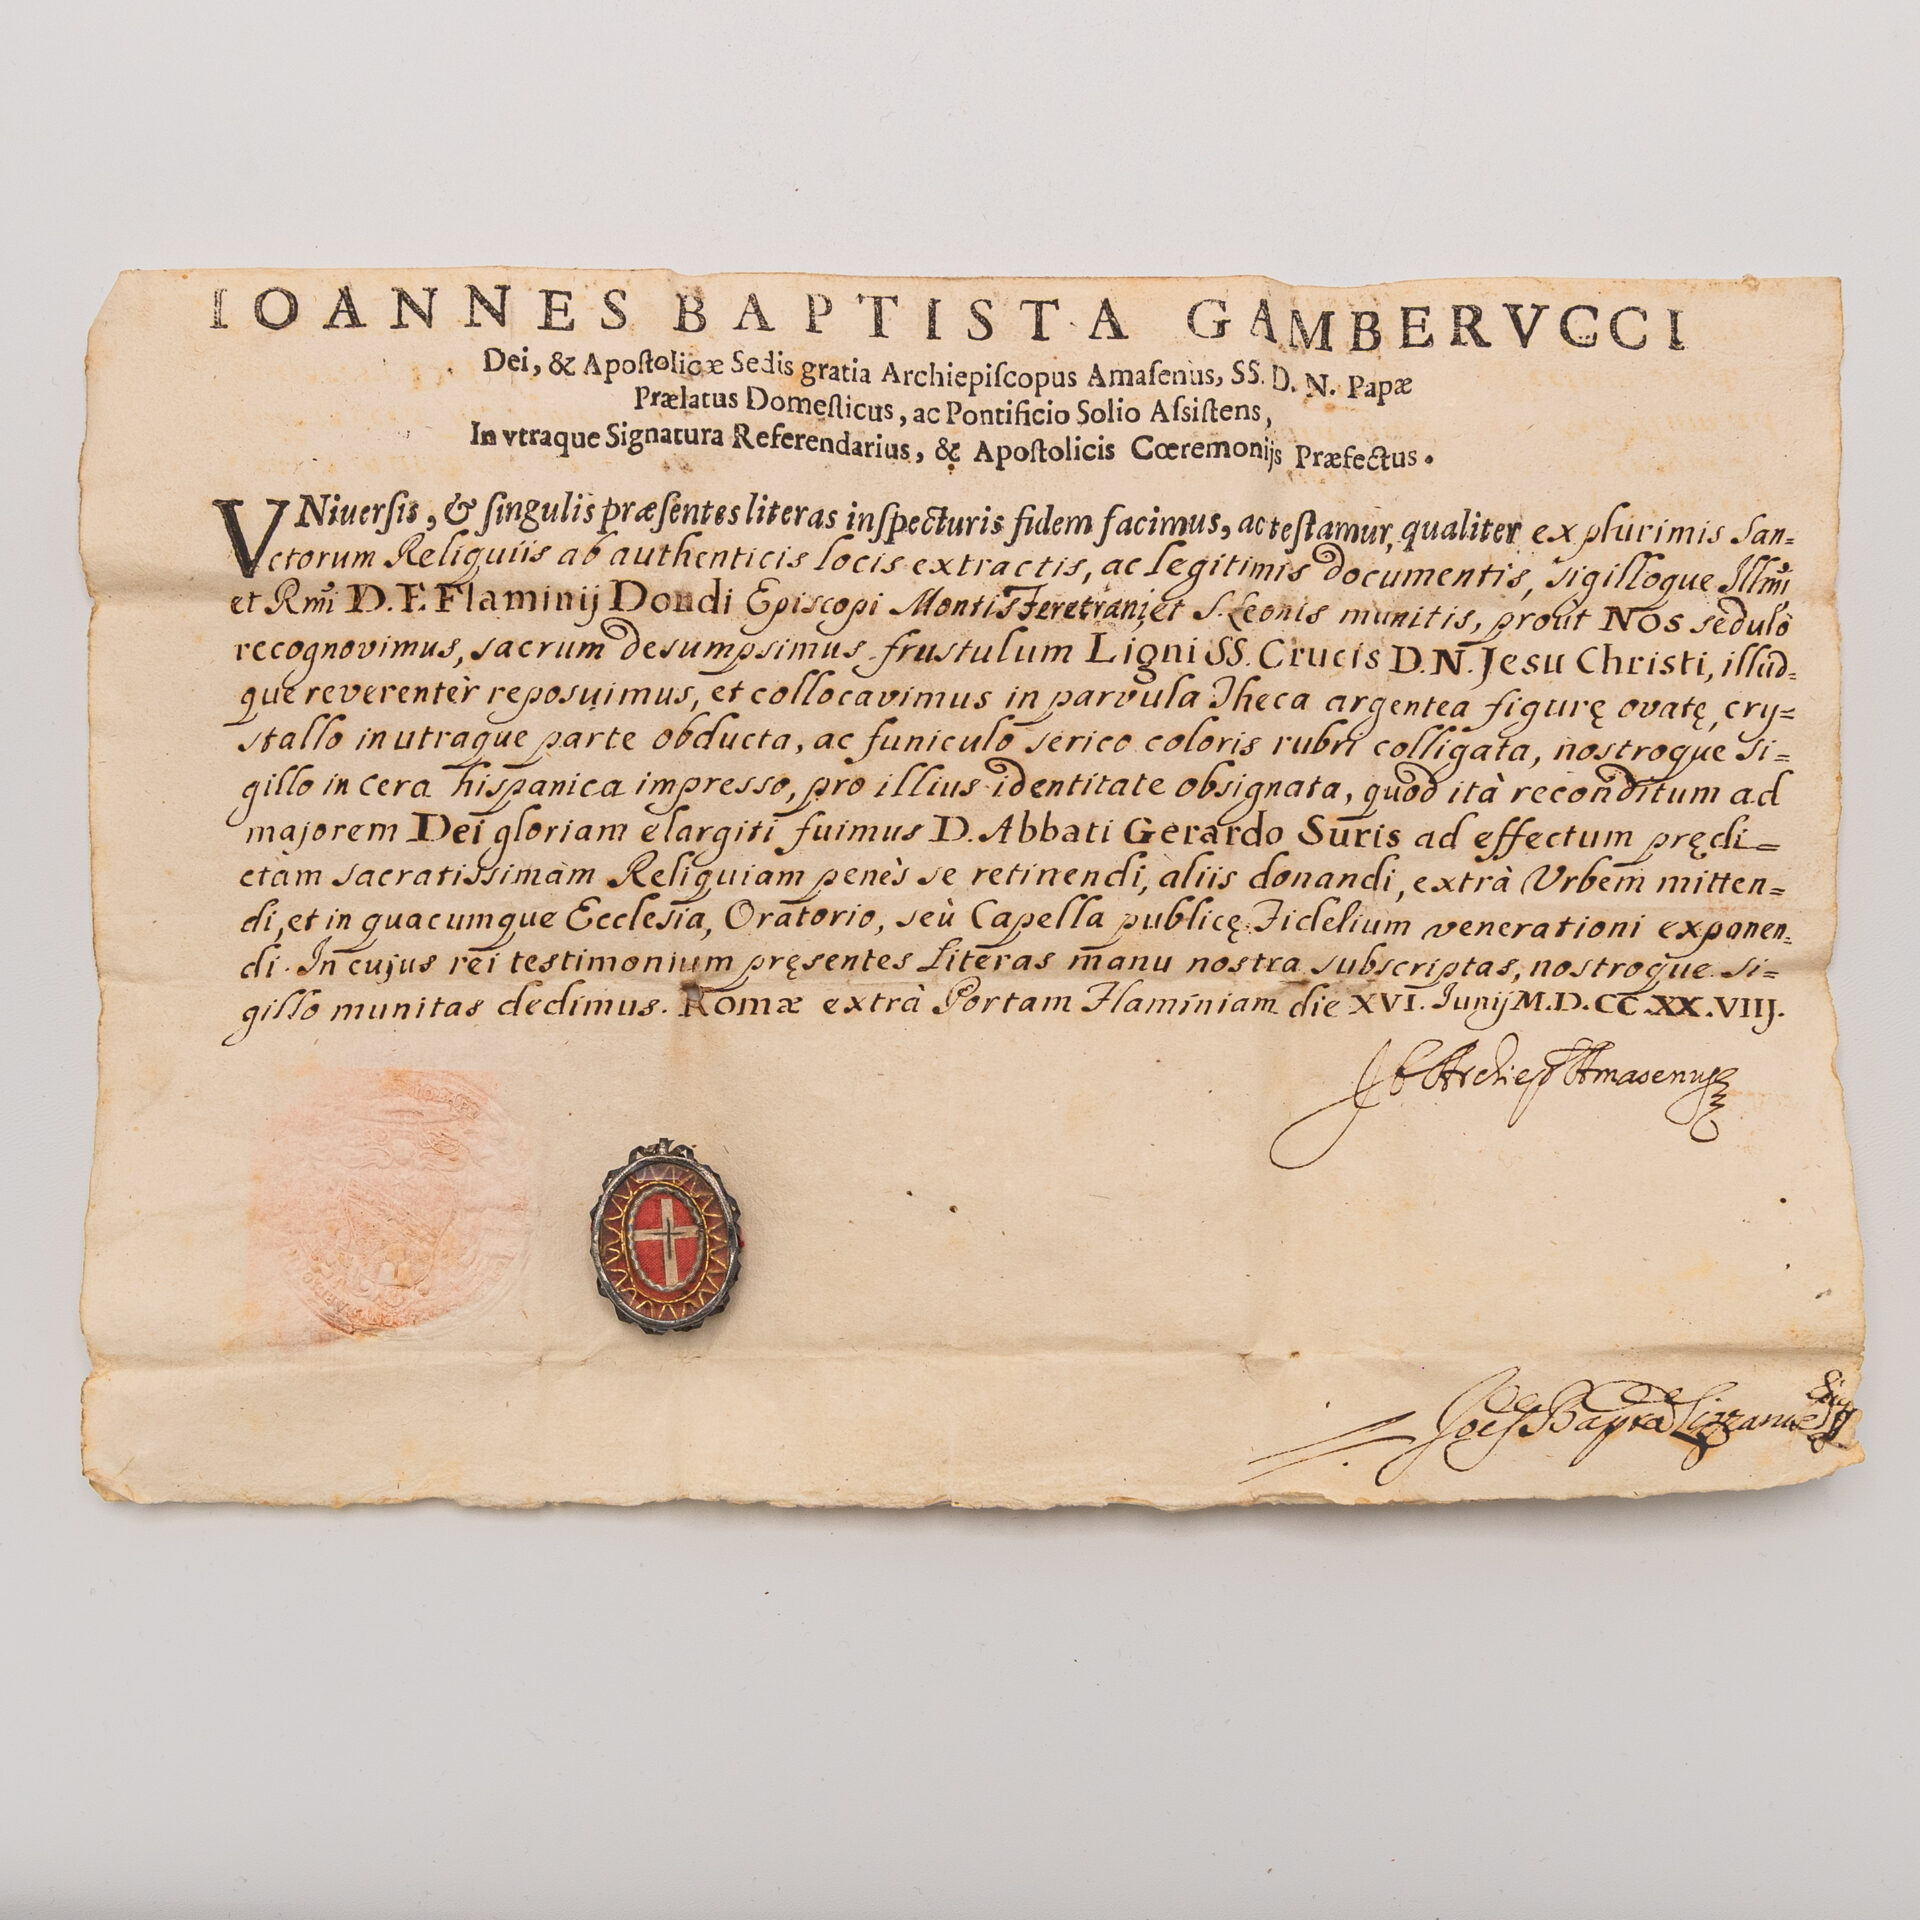 IOANNES BAPTISTA GAMBERVCCI
Dei, & Apoſtolicæ Sedis gratia Archiepiſcopus Amaſenus, SS. D. N. Papæ
Prælatus Domeſticus, ac Pontificio Solio Aſsiſtens,
In vtraque Signatura Referendarius, & Apoſtolicis Cœremonijs Præfectus.
VNiuerſis, & ſingulis præſentes literas inſpecturis fidem facimus, ac teſtamur, qualiter ex plurimis San=
ctorum Reliquiis ab authenticis locis extractis, ac legitimis documentis, sigilloque Illm̃i
et Rm̃i D. F. Flaminij Dondi Episcopi Montis Feretrani, et S. Leonis munitis, prout Nos sedulò
recognovimus, sacrum desumpsimus frustulum Ligni SS. Crucis D. N. Jesu Christi, illud=
que reverentèr reposuimus, et collocavimus in parvula Theca argentea figurę ovatę, cry=
stallo in utraque parte obducta, ac funiculo serico coloris rubri colligata, nostroque si=
gillo in cera hispanica impresso, pro illius identitate obsignata, quod ità reconditum ad
majorem Dei gloriam elargiti fuimus D. Abbati Gerardo Suris ad effectum prędi=
ctam sacratissimam Reliquiam penès se retinendi, aliis donandi, extrà Urbem mitten=
di, et in quacumque Ecclesia, Oratorio, seù Capella publicę Fidelium venerationi exponen=
di. In cujus rei testimonium pręsentes Literas manu nostra subscriptas, nostroque si=
gillo munitas dedimus. Romæ extrà Portam Flaminiam die XVI. Junij M.D.CC.XX.VIIJ.
J B Archiep Amasenus